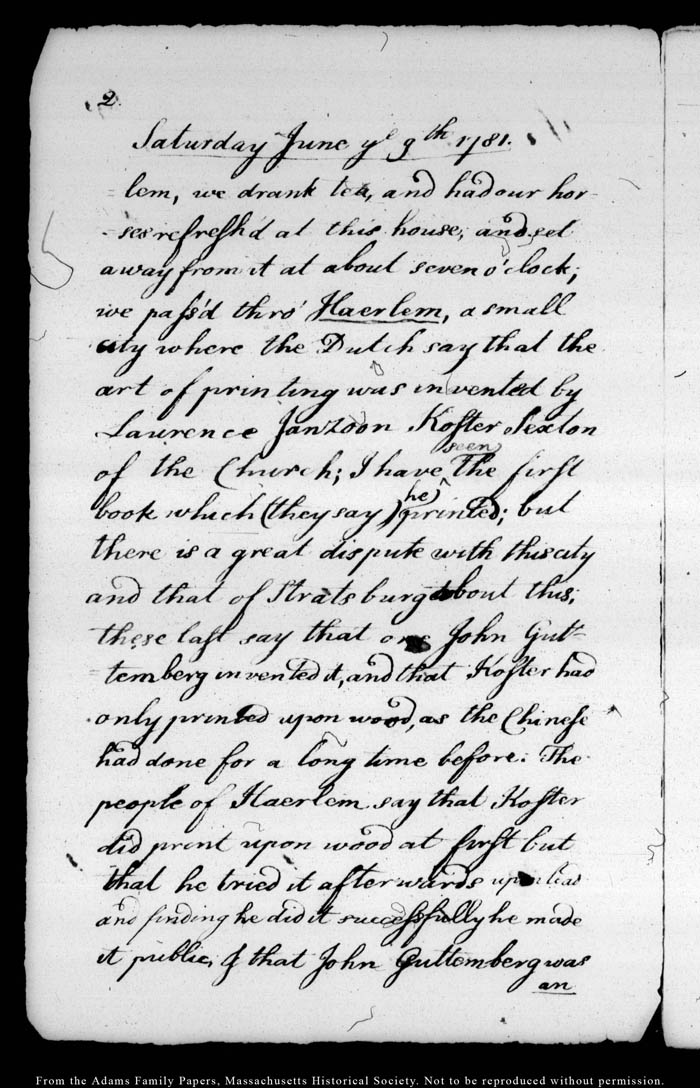 2
Saturday June ye 9th 1781.
lem, we drank tea, and had our hor-
-ses refresh'd at this house; and set
away from it at about seven o'clock;
we pass'd thro' Haerlem, a small
city where the Dutch say that the
art of printing was invented by
Laurence Janzoon Koster Sexton
of the Church; I have seen the first
book which (they say) he printed; but
there is a great dispute with this city
and that of Stratsburg about this;
these last say that one John Gut-
temberg invented it, and that Koster had
only printed upon wood, as the Chinese
had done for a long time before. The
people of Haerlem say that Koster
did print upon wood at first but
that he tried it afterwards upon lead
and finding he did it successfully he made
it public, & that John Guttemberg was
an
From the Adams Family Papers, Massachusetts Historical Society. Not to be reproduced without permission.